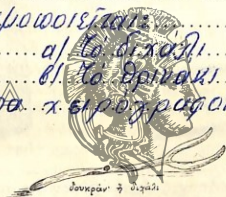 μοποιεῖται:
α) Τό διχάλι
β) Τό θρινάκι
χειρόγραφο
δουκράν' ἤ διχάλι